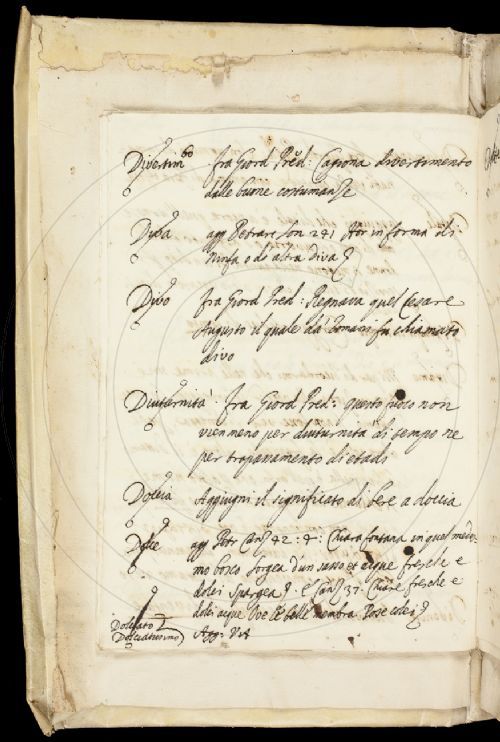 Divertim.to fra Giord Pred: Cagiona divertimento
dalle buone costumanze
Diva agg Petrarc son 241 Hor in forma di
Ninfa o d'altra diva
Divo fra Giord Pred: Regnava quel Cesare
Augusto il quale da Romani fu chiamato
divo
Diuturnità fra Giord Pred: questo fuoco non
vien meno per diuturnità di tempo ne
per trapanamento di etadi
Doccia Aggiugni il significato di bere a doccia
Dolce agg Petr Canz 42: 4: Chiara fontana in quel mede:
mo bosco Sorgea d'un sasso et acque fresche e
dolci Spargea E Canz 37 Chiare fresche e
dolci acque Ove le belle membra Pose colei
Dolciato
Dolciatissimo Agg: V.A